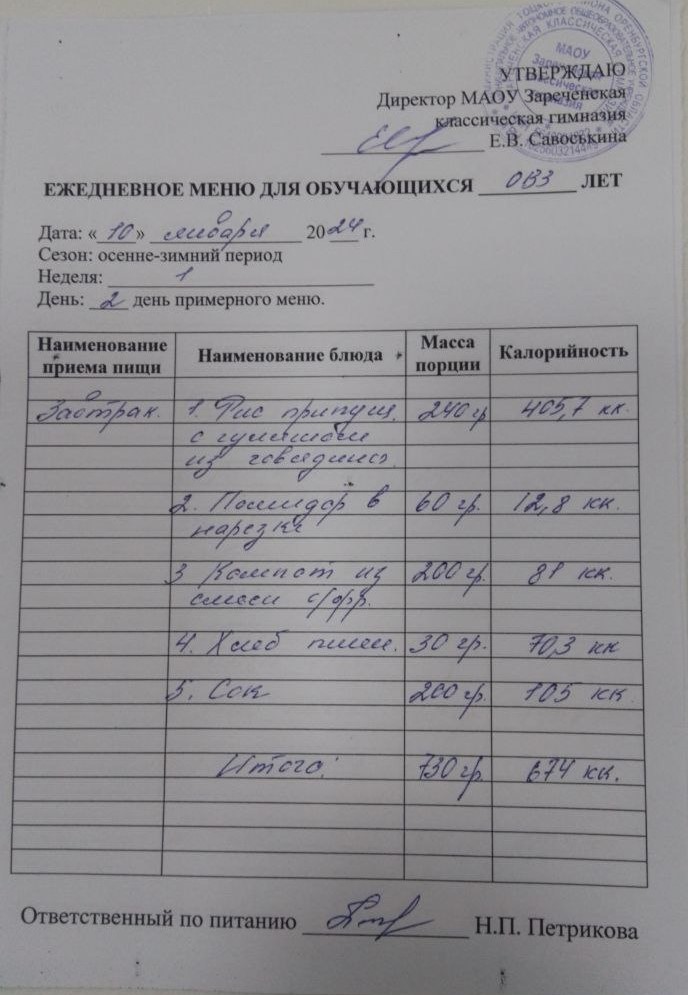 МАОУ
УТВЕРЖДАЮ
Директор МАОУ Зареченская
классическая гимназия
Е.В. Савоськина
ЕЖЕДНЕВНОЕ МЕНЮ ДЛЯ ОБУЧАЮЩИХСЯ ОВЗ ЛЕТ
Дата: «10» января 2024 г.
Сезон: осенне-зимний период
Неделя: 1
День: 2 день примерного меню.
Наименование приема пищи Наименование блюда Масса порции Калорийность
Завтрак. 1. Рис припущ. 240 гр 405,7 кк.
с гуляшом
из говядины.
2. Помидор в 60 гр. 12,8 кк.
нарезке
3 Компот из 200 гр. 81 кк.
смеси с/фр.
4. Хлеб пшен. 30 гр. 70,3 кк
5. Сок 200 гр. 105 кк.
Итого: 730 гр. 674 кк.
Ответственный по питанию Н.П. Петрикова